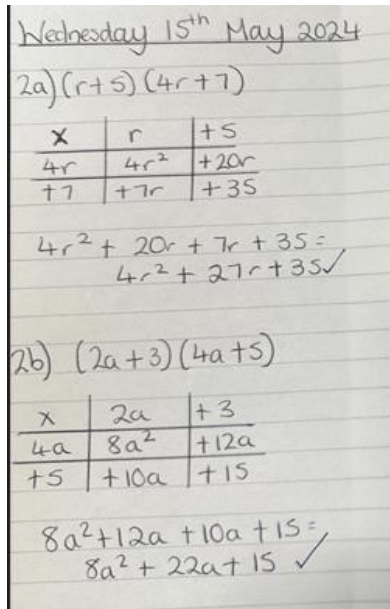 Wednesday 15th May 2024
2a) (r+5) (4r+7)
x | r | +5
4r | 4r² | +20r
+7 | +7r | +35
4r² + 20r + 7r + 35 =
4r² + 27r + 35 ✓
2b) (2a+3) (4a+5)
x | 2a | +3
4a | 8a² | +12a
+5 | +10a | +15
8a²+12a +10a +15 =
8a² + 22a + 15 ✓